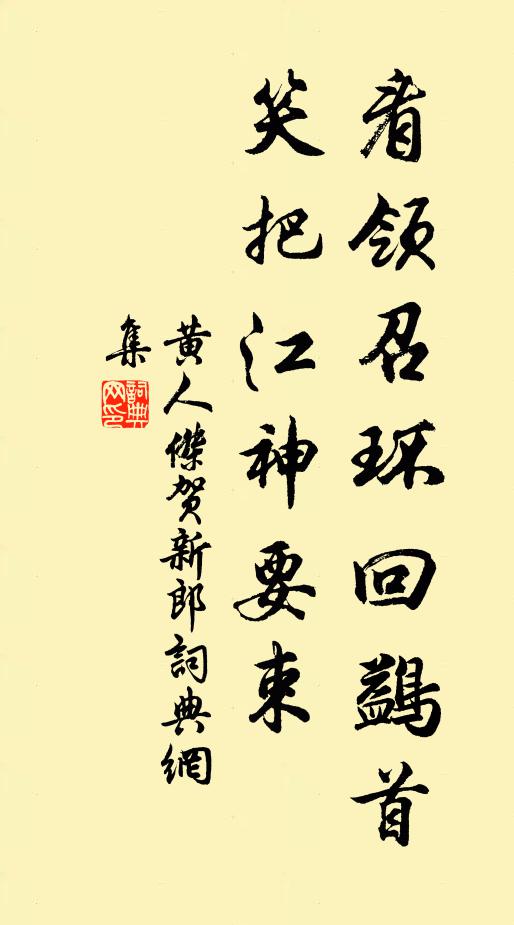 看領召环回鷁首
笑把江神要束
黄人傑贺新郎詞典網
集
詞典
网印